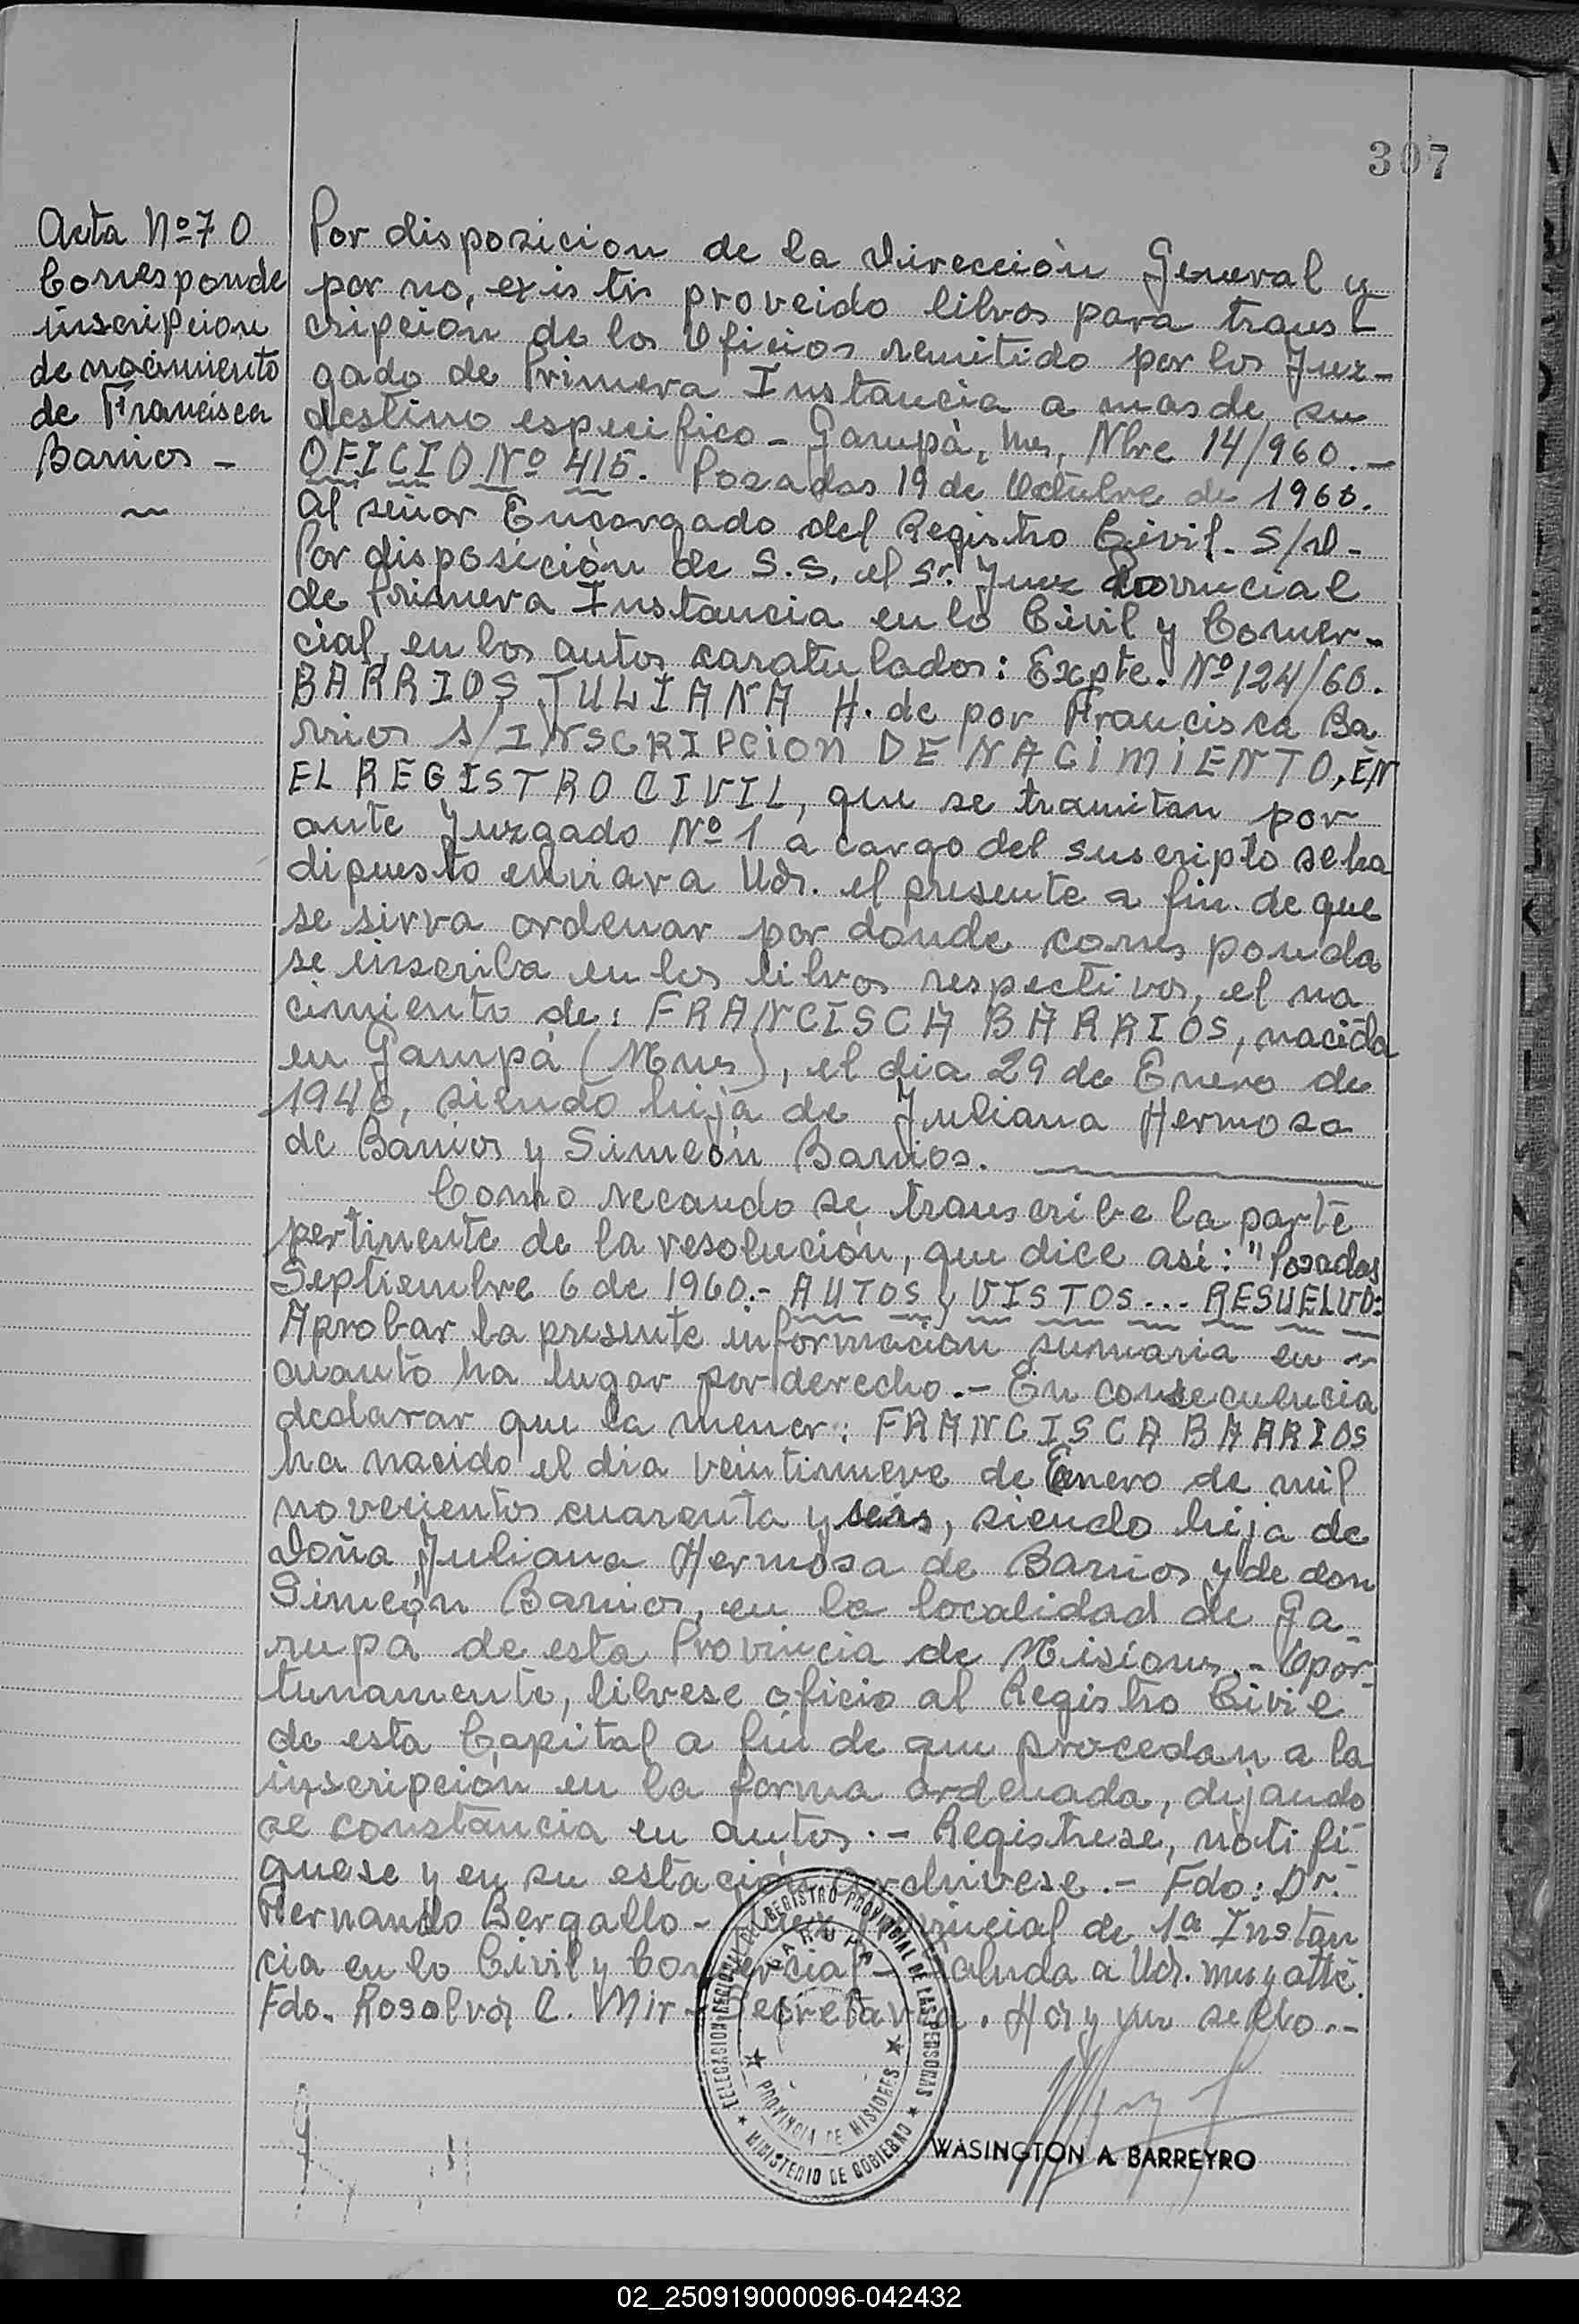 307
Acta Nº 70
Corresponde
inscripcion
de nacimiento
de Francisca
Barrios -
Por disposicion de la Dirección General y
por no, existir proveido libros para trans-
cripción de los Oficios remitido por los Juz-
gado de Primera Instancia a mas de su
destino especifico - Garupá, Mns, Nbre 14/960.-
OFICIO Nº 415. Posadas 19 de Octubre de 1960.
Al señor Encargado del Registro Civil - S/D-
Por disposición de S.S. el Sr. Juez Provincial
de Primera Instancia en lo Civil y Comer-
cial, en los autos caratulados: Expte. Nº 124/60.
BARRIOS JULIANA H. de por Francisca Ba
rrios s/INSCRIPCION DE NACIMIENTO, EN
EL REGISTRO CIVIL, que se tramitan por
ante Juzgado Nº 1 a cargo del suscripto se ha
dipuesto enviar a Ud. el presente a fin de que
se sirva ordenar por donde corresponda
se inscriba en los libros respectivos, el na
cimiento de: FRANCISCA BARRIOS, nacida
en Garupá (Mnes), el dia 29 de Enero de
1946, siendo hija de Juliana Hermosa
de Barrios y Simeón Barrios.
Como recaudo se transcribe la parte
pertinente de la resolución, que dice asi: "Posadas
Septiembre 6 de 1960.- AUTOS y VISTOS... RESUELVO:
Aprobar la presente información sumaria en
cuanto ha lugar por derecho.- En consecuencia
declarar que la menor: FRANCISCA BARRIOS
ha nacido el dia veintinueve de Enero de mil
novecientos cuarenta y seis, siendo hija de
Doña Juliana Hermosa de Barrios y de don
Simeón Barrios, en la localidad de Ga-
rupá de esta Provincia de Misiones.- Opor-
tunamente, librese oficio al Registro Civil
de esta Capital a fin de que procedan a la
inscripción en la forma ordenada, dejando
se constancia en autos.- Registrese, notifi
quese y en su estación Archivese.- Fdo: Dr.
Hernando Bergallo - Juez Provincial de 1ª Instan
cia en lo Civil y Comercial - Saluda a Ud. muy atte.
Fdo. Rosalva C. Mir - Secretaria. Hay un sello.-
DELEGACION REGIONAL DEL REGISTRO PROVINCIAL DE LAS PERSONAS
GARUPA
PROVINCIA DE MISIONES
MINISTERIO DE GOBIERNO
WASINGTON A. BARREYRO
02_250919000096-042432